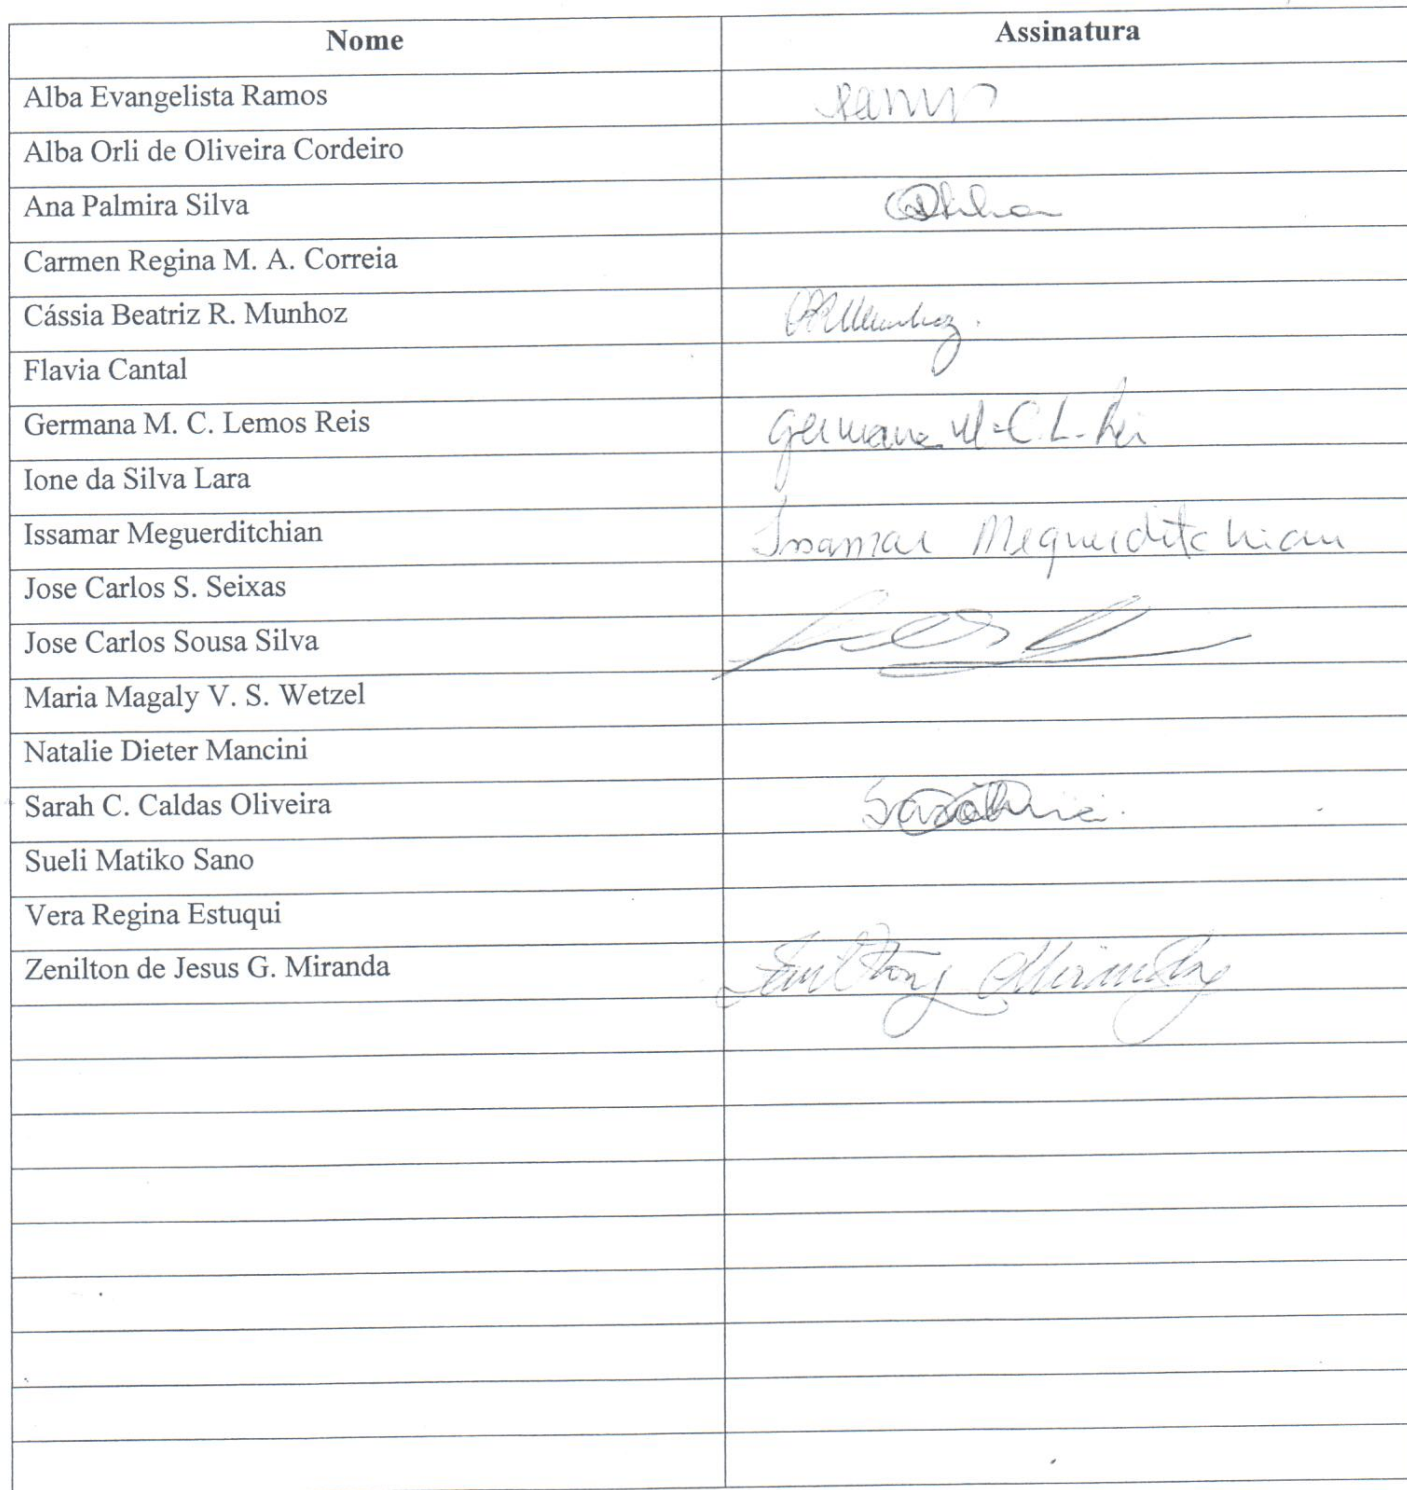 Nome Assinatura
Alba Evangelista Ramos
Alba Orli de Oliveira Cordeiro
Ana Palmira Silva
Carmen Regina M. A. Correia
Cássia Beatriz R. Munhoz
Flavia Cantal
Germana M. C. Lemos Reis Germana M. C. L. Reis
Ione da Silva Lara
Issamar Meguerditchian Issamar Meguerditchian
Jose Carlos S. Seixas
Jose Carlos Sousa Silva
Maria Magaly V. S. Wetzel
Natalie Dieter Mancini
Sarah C. Caldas Oliveira
Sueli Matiko Sano
Vera Regina Estuqui
Zenilton de Jesus G. Miranda